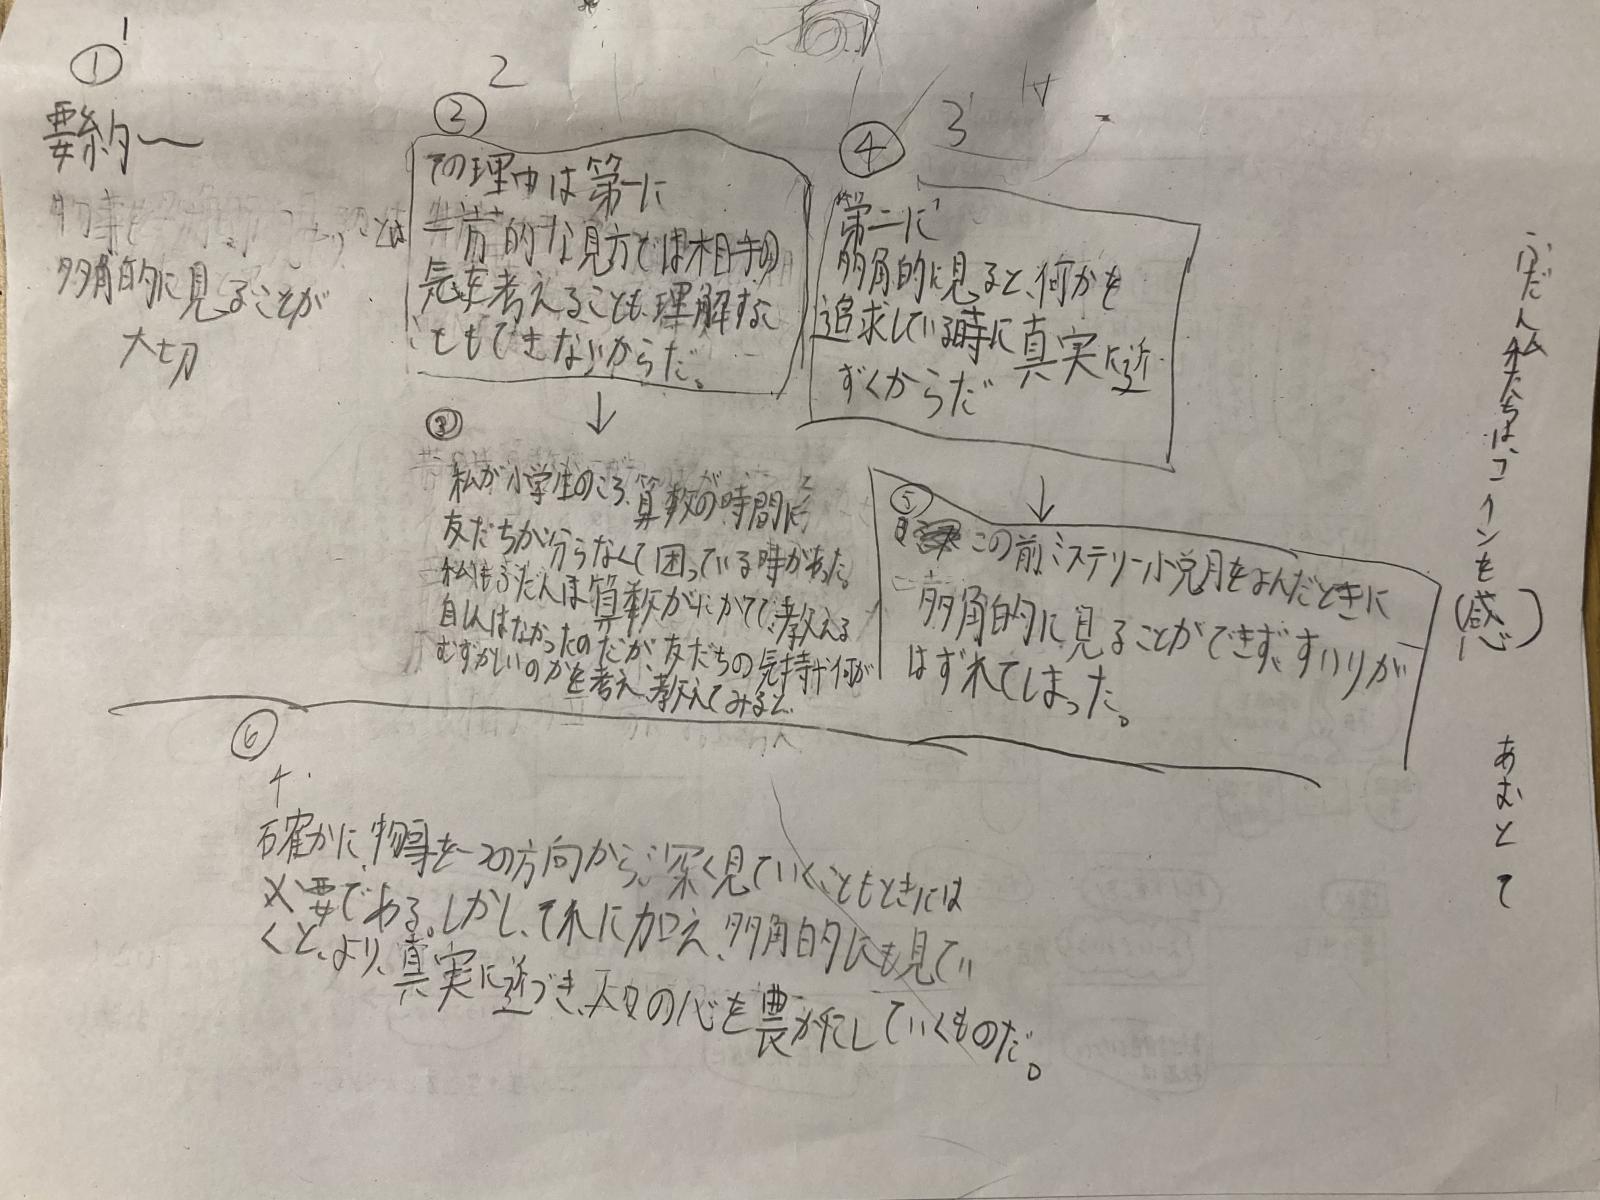 1
①
要約〜
多角的に見ることが
大切
2
②
その理由は第一に
一方的な見方では相手の
気を考えることも理解するこ
ともできないからだ。
↓
③
私が小学生のころ、算数の時間に
友だちが分らなくて困っている時があった。
私もふだんは算数がにがてで、教える
自しんはなかったのだが、友だちの気持や何が
むずかしいのかを考え、教えてみると、
3
④
第二に
多角的に見ると、何かを
追求している時に真実に近
ずくからだ
↓
⑤
この前ミステリー小説をよんだときに
多角的に見ることができず、すいりが
はずれてしまった。
⑥
4.
確かに、物事を一つの方向から深く見ていくこともときには
必要である。しかし、それに加え、多角的にも見てい
くと、より、真実に近づき、人々の心を豊かにしていくものだ。
ふだん私たちは、コインを
(感)
あむとて